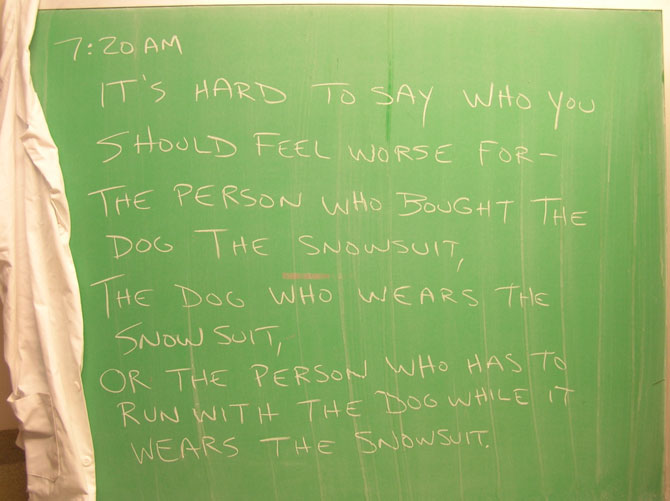 7:20 AM
IT'S HARD TO SAY WHO YOU
SHOULD FEEL WORSE FOR-
THE PERSON WHO BOUGHT THE
DOG THE SNOWSUIT,
THE DOG WHO WEARS THE
SNOWSUIT,
OR THE PERSON WHO HAS TO
RUN WITH THE DOG WHILE IT
WEARS THE SNOWSUIT.